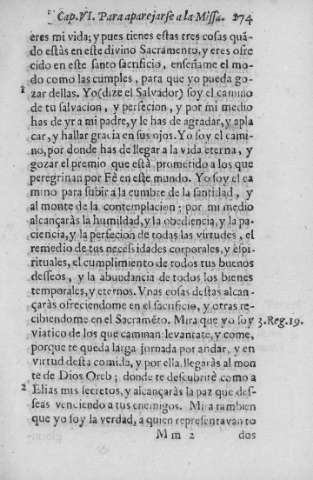 Cap. VI. Para aparejarse a la Missa. 274
eres mi vida; y pues tienes estas tres cosas quã-
do estàs en este divino Sacramento, y eres ofre
cido en este santo sacrificio, enseñame el mo-
do como las cumples, para que yo pueda go-
zar dellas. Yo (dize el Salvador) soy el camino
de tu salvacion, y perfecion, y por mi medio
has de yr a mi padre, y le has de agradar, y apla
car, y hallar gracia en sus ojos. Yo soy el cami-
no, por donde has de llegar a la vida eterna, y
gozar el premio que està prometido a los que
peregrinan por Fè en este mundo. Yo soy el ca
mino para subir a la cumbre de la santidad, y
al monte de la contemplacion; por mi medio
alcançaràs la humildad, y la obediencia, y la pa-
ciencia, y la perfecion de todas las virtudes, el
remedio de tus necessidades corporales, y espi-
rituales, el cumplimiento de todos tus buenos
desseos, y la abundancia de todos los bienes
temporales, y eternos. Vnas cosas destas alcan-
çaràs ofreciendome en el sacrificio, y otras re-
cibiendome en el Sacramẽto. Mira que yo soy 3. Reg. 19.
viatico de los que caminan: levantate, y come,
porque te queda larga jornada por andar, y en
virtud desta comida, y por ella llegaràs al mon
te de Dios Oreb; donde te descubrirè como a
2 Elias mis secretos, y alcançaràs la paz que des-
seas venciendo a tus enemigos. Mira tambien
que yo soy la verdad, a quien representavan to
Mm 2 dos